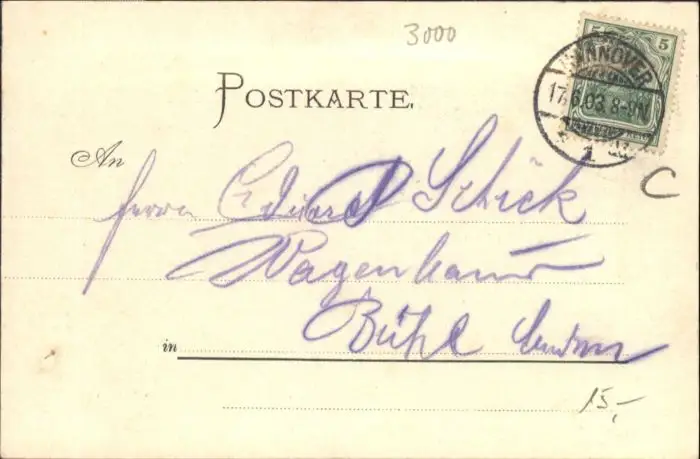 3000
5 5
HANNOVER
17.6.03. 8-9N
1
POSTKARTE.
An
Herrn Eduard Schick
in Bühl
C
15,-